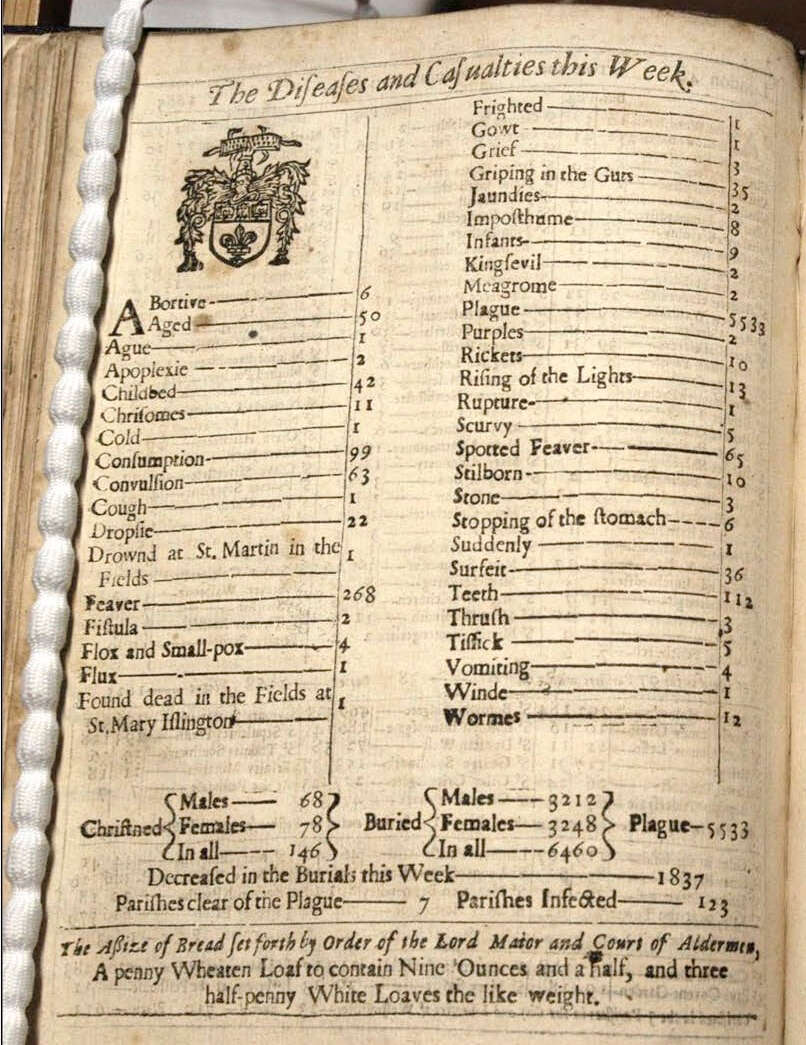 The Diſeaſes and Caſualties this Week.
ABortive 6
Aged 50
Ague 1
Apoplexie 2
Childbed 42
Chriſomes 11
Cold 1
Conſumption 99
Convulſion 63
Cough 1
Dropſie 22
Drownd at St. Martin in the 1
Fields
Feaver 268
Fiſtula 2
Flox and Small-pox 4
Flux 1
Found dead in the Fields at 1
St. Mary Iſlington
Frighted 1
Gowt 1
Grief 3
Griping in the Guts 35
Jaundies 2
Impoſthume 8
Infants 9
Kingſevil 2
Meagrome 2
Plague 5533
Purples 2
Rickets 10
Riſing of the Lights 13
Rupture 1
Scurvy 5
Spotted Feaver 65
Stilborn 10
Stone 3
Stopping of the ſtomach 6
Suddenly 1
Surfeit 36
Teeth 112
Thruſh 3
Tiſſick 5
Vomiting 4
Winde 1
Wormes 12
Chriſtned
Males 68
Females 78
In all 146
Buried
Males 3212
Females 3248
In all 6460
Plague 5533
Decreaſed in the Burials this Week 1837
Pariſhes clear of the Plague 7 Pariſhes Infected 123
The Aſsize of Bread ſet forth by Order of the Lord Maior and Court of Aldermen,
A penny Wheaten Loaf to contain Nine Ounces and a half, and three
half-penny White Loaves the like weight.